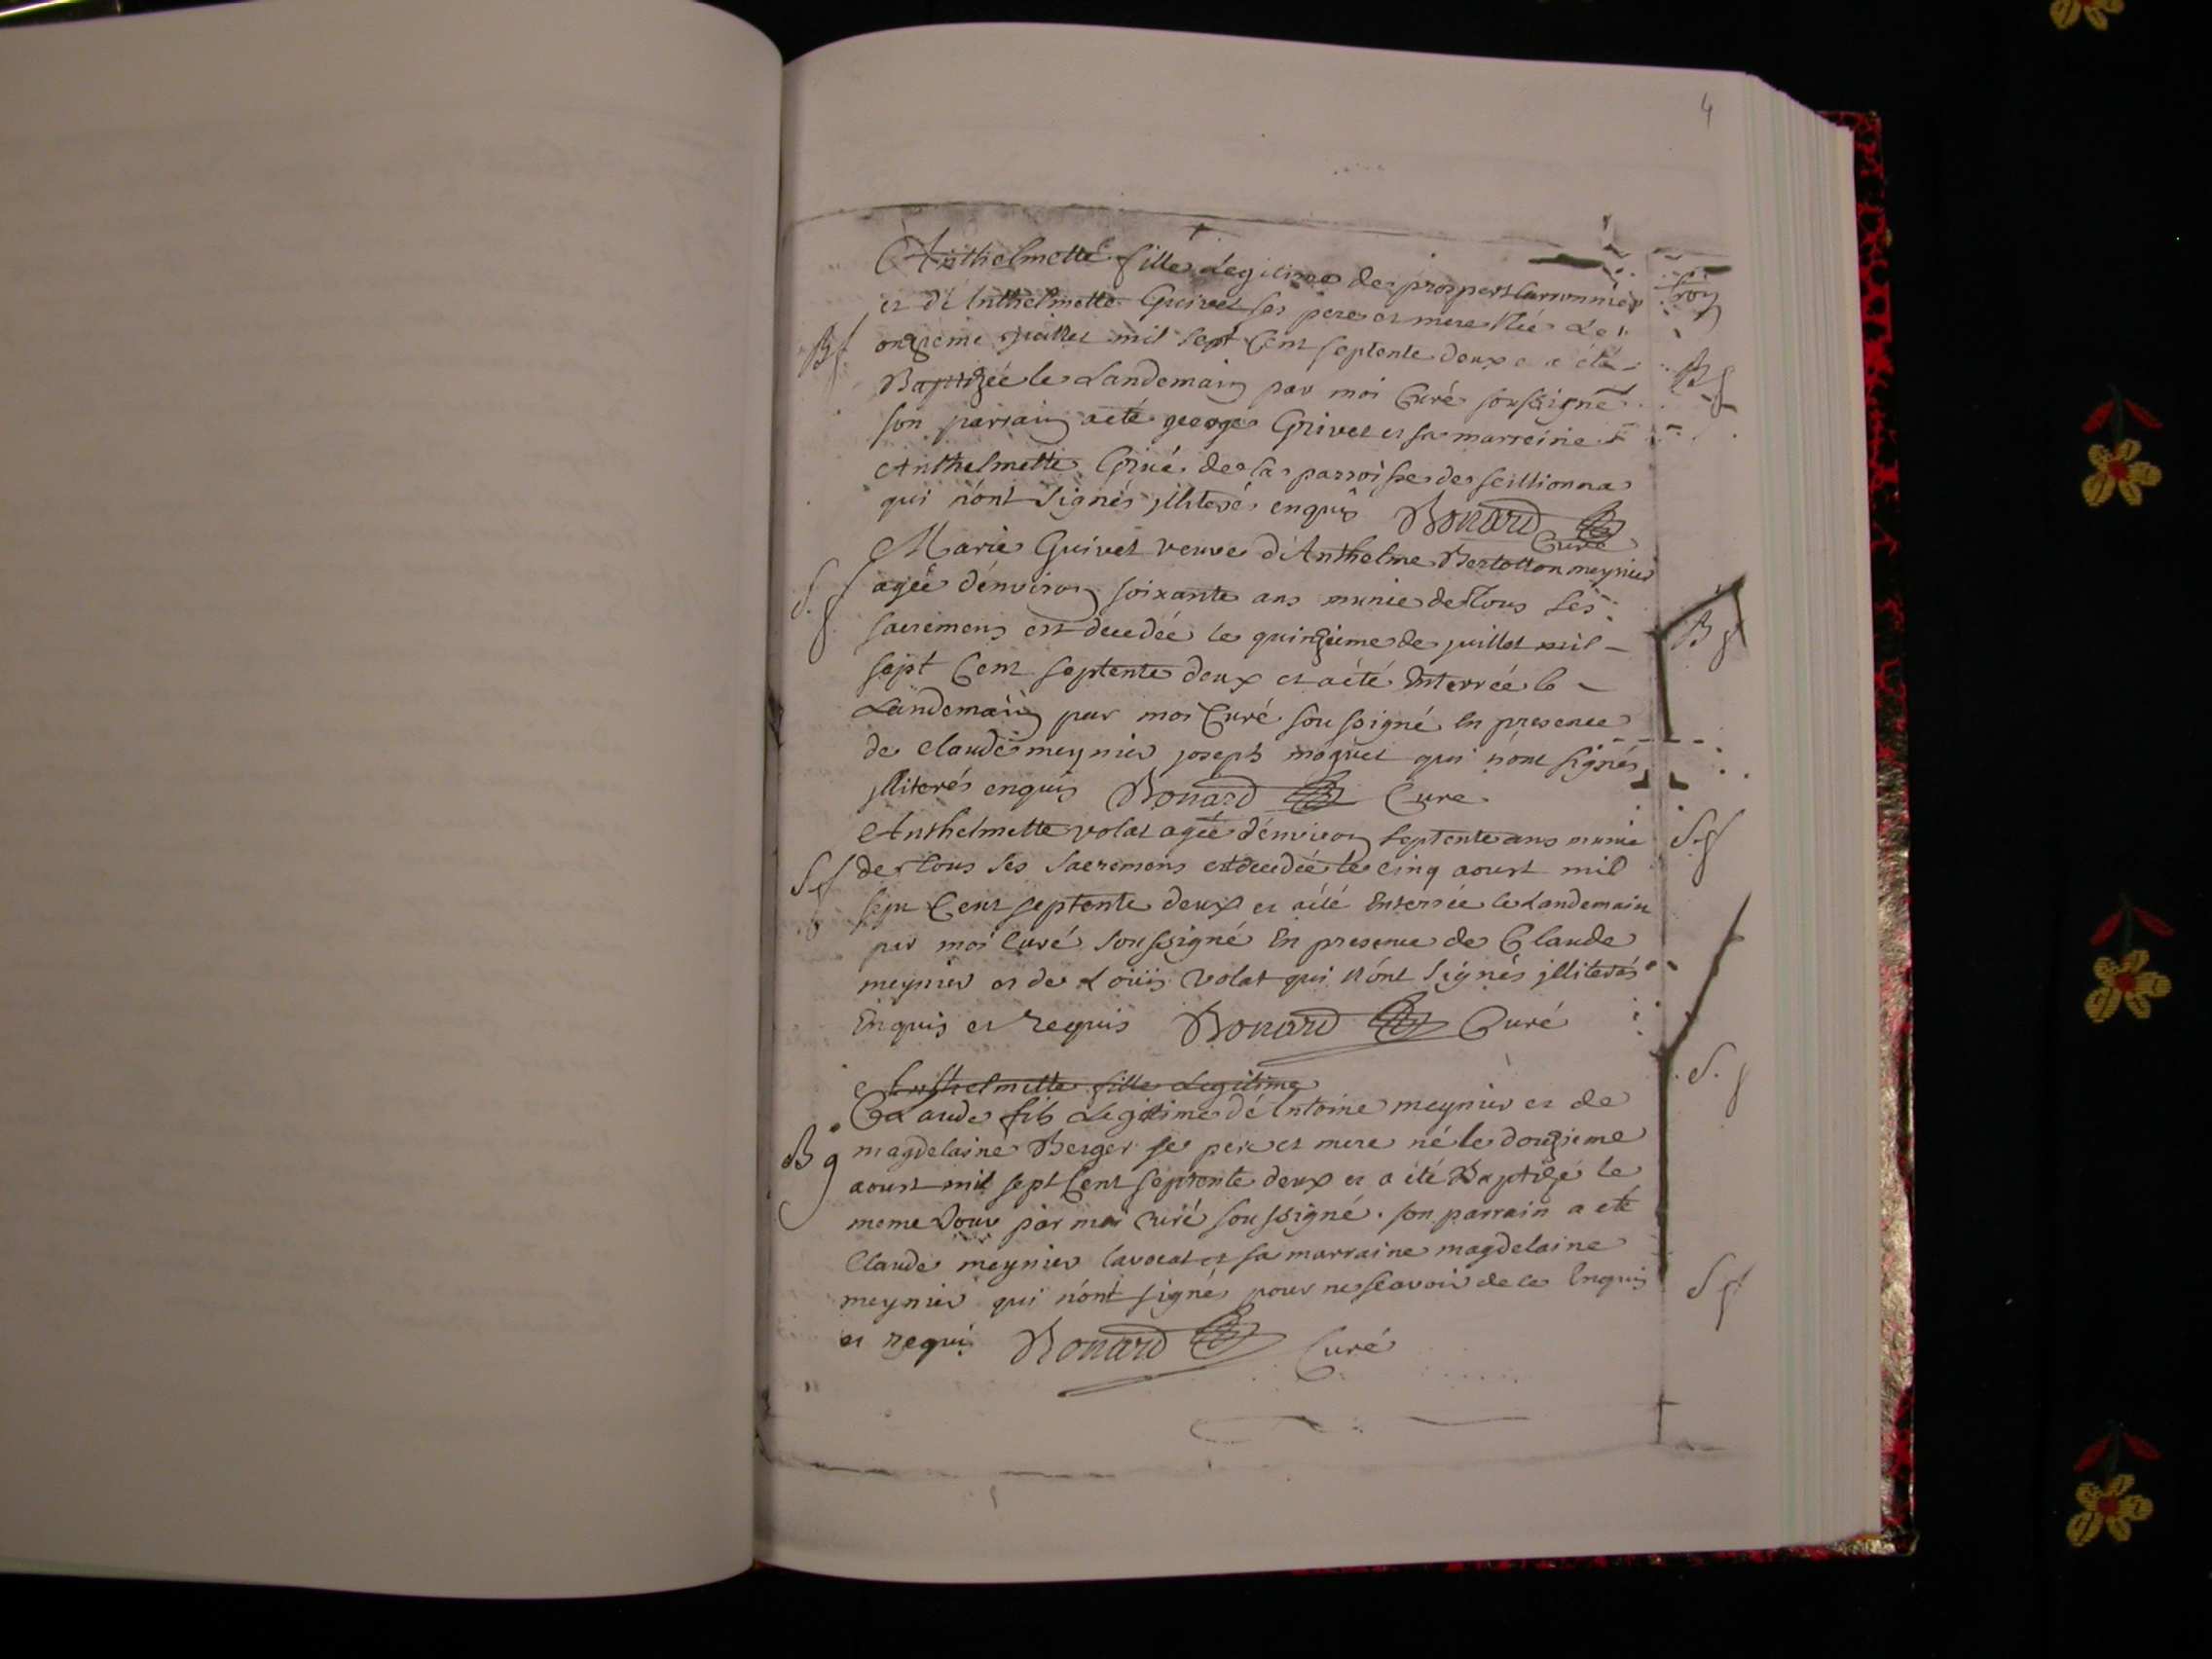 4
Anthelmette fille Legitime de prospert
et d'Anthelmette Guivet ses pere et mere Née Le
B f onzieme juillet mil sept Cent septente deux e a été
Baptizée le Landemain par moi Curé soussigné
son parrain a été george Grivet et sa marreine
Anthelmette de la parroisse de seillionna
qui n'ont signés jlliterés enquis Bonard
Curé
Marie Guivet veuve d'Anthelme Bertollon meynier
S. f agée d'environ soixante ans munie de tous ses
sacremens est decedée le quinzieme de juillet mil
sept Cent septente deux et a été Enterrée le
Landemain par moi Curé soussigné En presence
de Claude meynier joseph moquet qui n'ont signés
jlliterés enquis Bonard Curé
Anthelmette volat agée d'environ septente ans munie
S f de tous ses sacremens est decedée le cinq aoust mil
sept Cent septente deux et a été Enterrée le Landemain
par moi Curé soussigné En presence de Claude
meynier et de Loüis volat qui n'ont signés jlliterés
Enquis et requis Bonard Curé
Anthelmette fille Legitime
Claude fils Legitime d'Antoine meynier et de
B g magdelaine Berger se pere et mere né le douzieme
aoust mil sept Cent septente deux et a été Baptizé le
meme Jour par moi Curé soussigné. son parrain a eté
Claude meynier lavocat et sa marraine magdelaine
meynier qui n'ont signés pour ne scavoir de ce Enquis
et requis Bonard Curé
B f
B f
S. f
S. f
S f